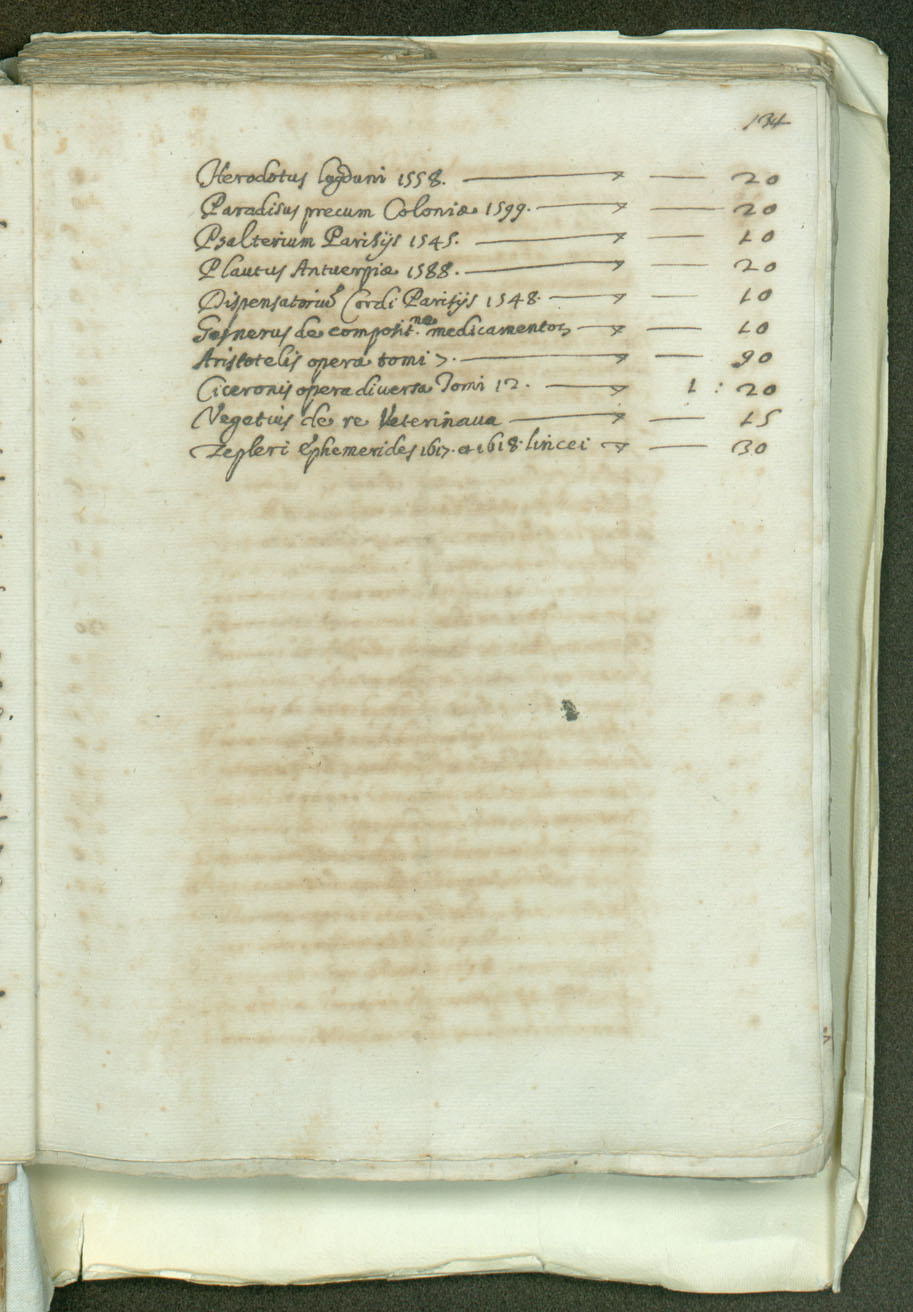 134
Herodotus lugduni 1558. — 20
Paradisus precum Coloniæ 1599. — 20
Psalterium Parisijs 1545. — 10
Plautus Antuerpiæ 1588. — 20
Dispensatoriũ Cordi Parisijs 1548. — 10
Gesnerus de composit.ne medicamentoꝝ — 10
Aristotelis opera tomi 7. — 90
Ciceronis opera diuersa Tomi 12. — 1 : 20
Vegetius de re Veterinaria — 15
Kepleri Ephemerides 1617. et 1618. lincei — 30